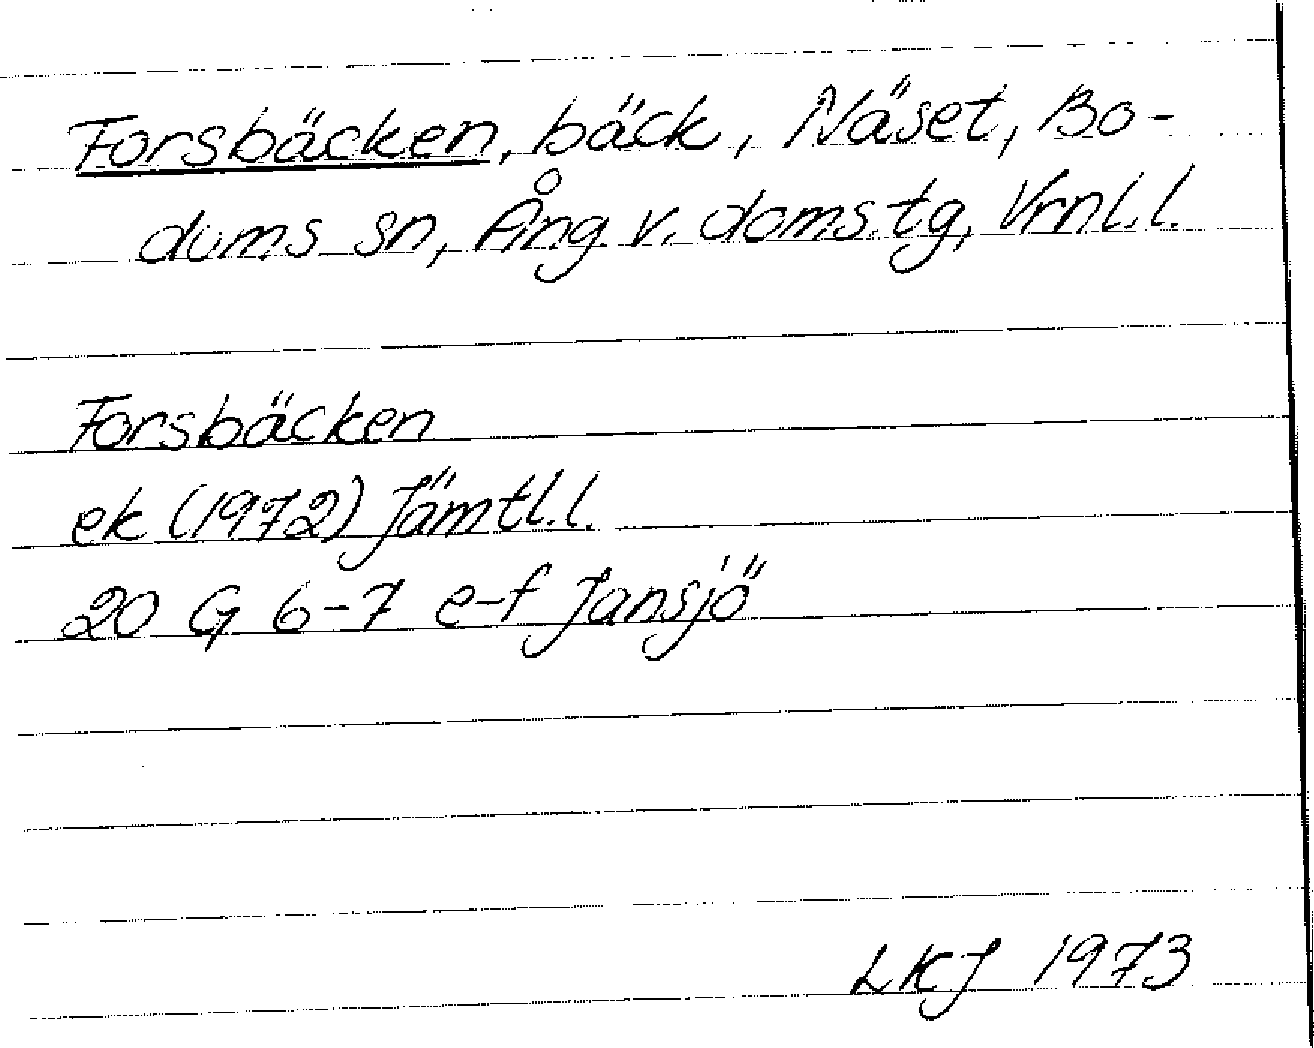 Forsbäcken, bäck, Näset, Bo-
dums sn, Ång v. doms.tg, Vrnl.l.
Forsbäcken
ek (1972) Jämtl.l.
20 G 6-7 e-f Jansjö
LKJ 1973